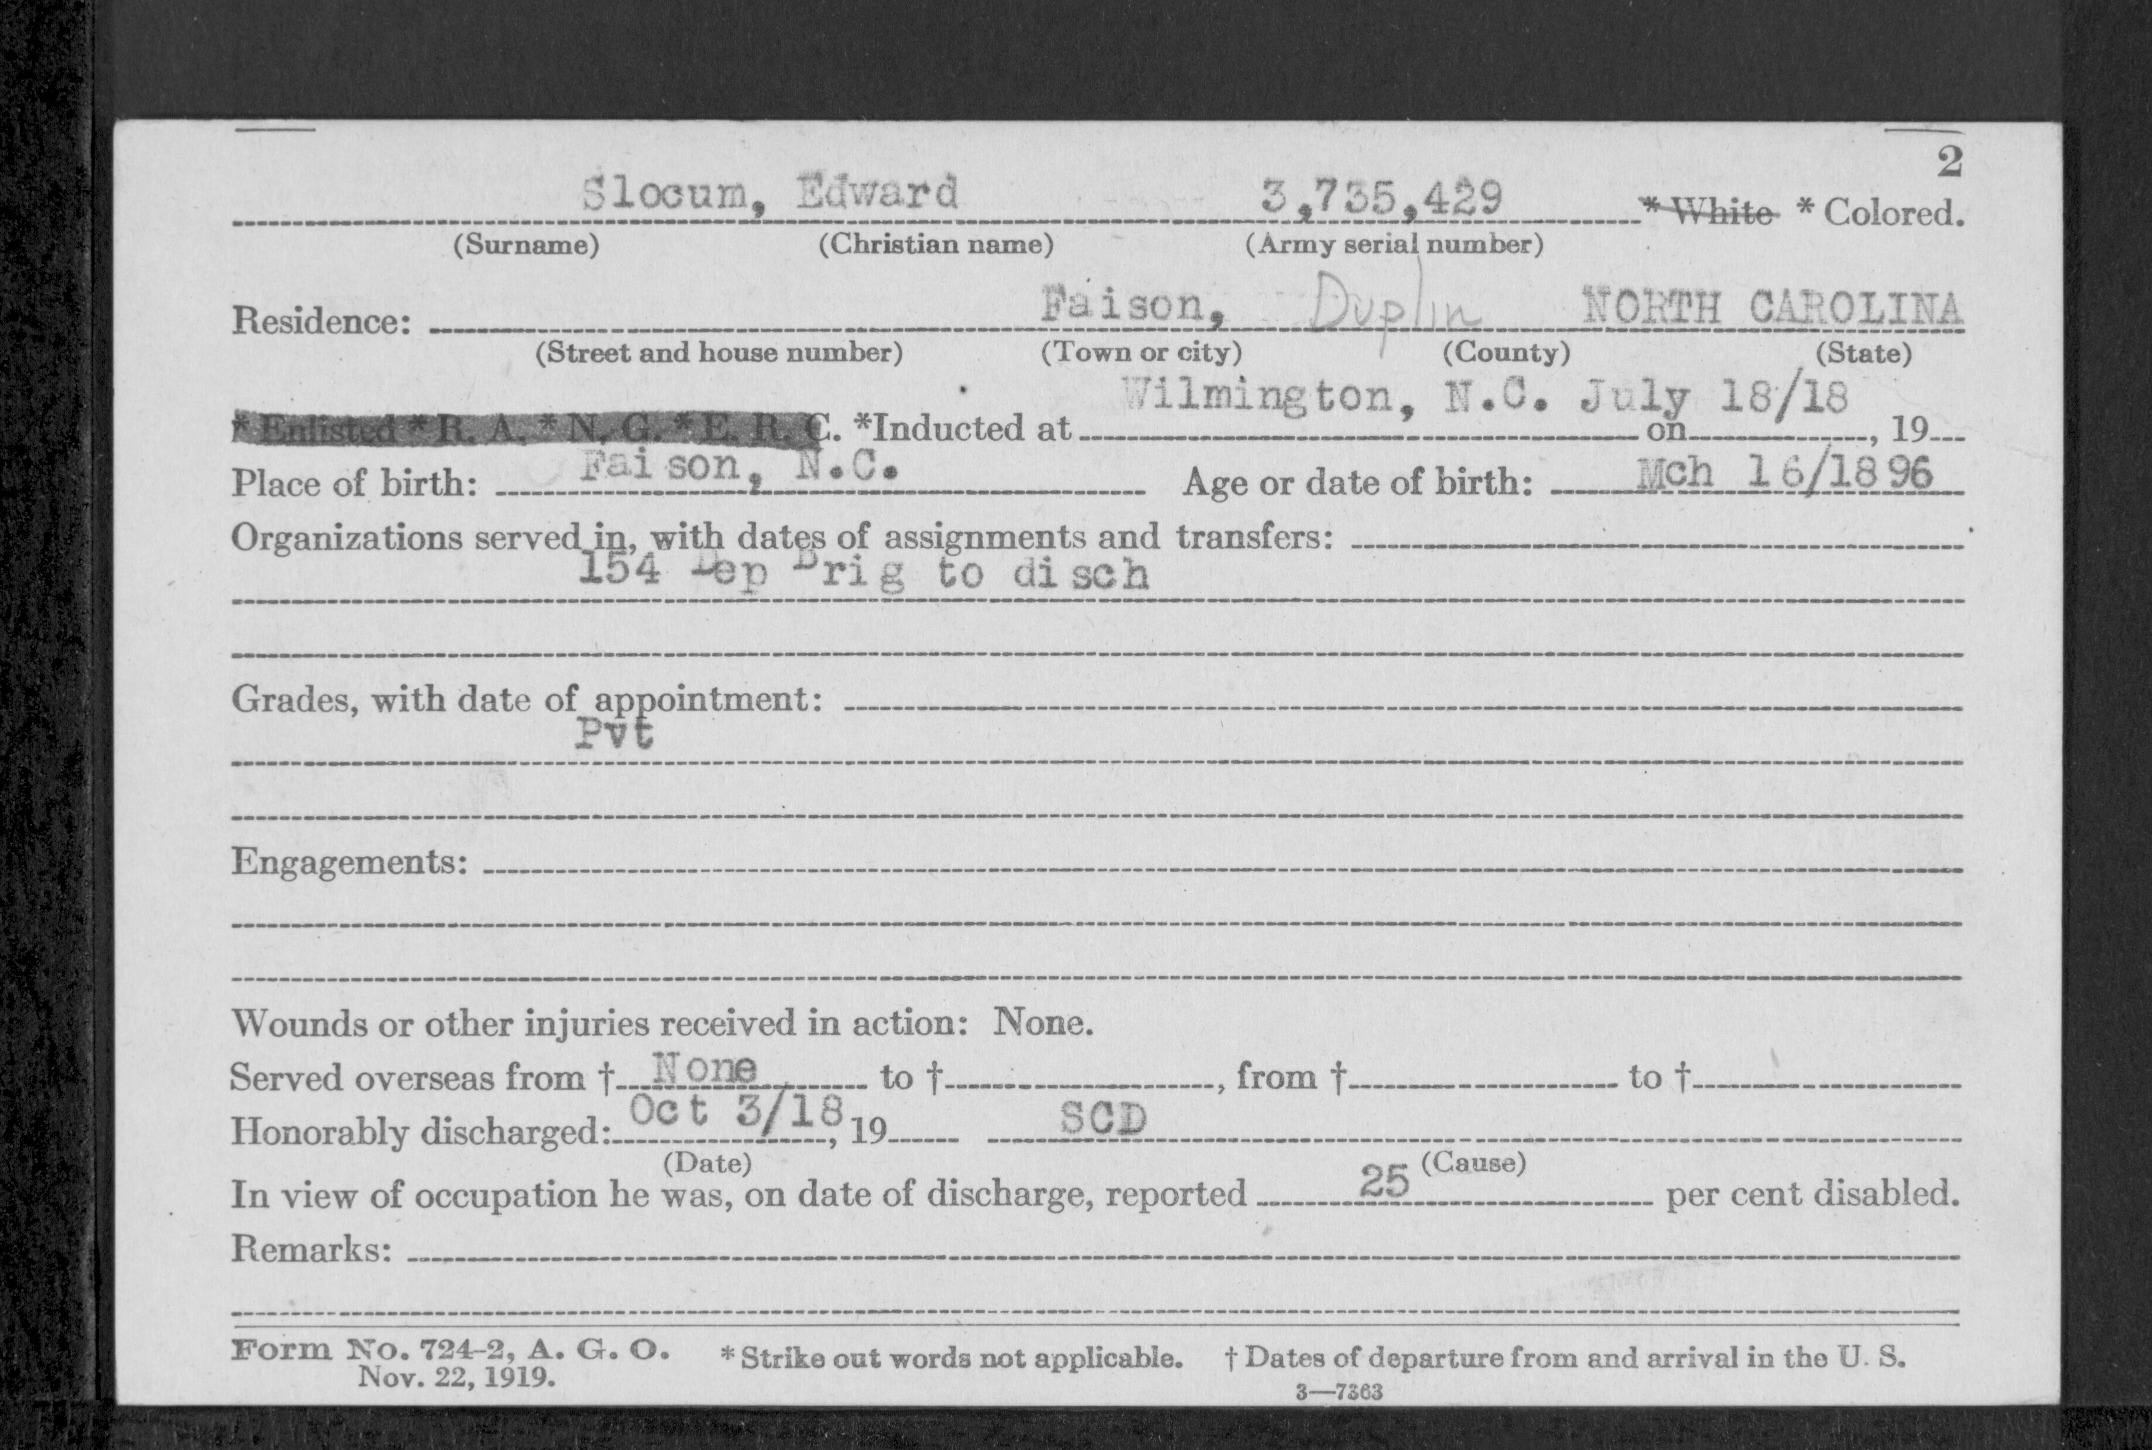 2
Slocum, Edward 3,735,429 * White * Colored.
(Surname) (Christian name) (Army serial number)
Residence: Faison, Duplin NORTH CAROLINA
(Street and house number) (Town or city) (County) (State)
* Enlisted * R. A. * N. G. * E. R. C. *Inducted at Wilmington, N.C. on July 18/18, 19
Place of birth: Faison, N.C. Age or date of birth: Mch 16/1896
Organizations served in, with dates of assignments and transfers:
154 Dep Brig to disch
Grades, with date of appointment:
Pvt
Engagements:
Wounds or other injuries received in action: None.
Served overseas from † None to † , from † to †
Honorably discharged: Oct 3/18, 19 SCD
(Date) (Cause)
In view of occupation he was, on date of discharge, reported 25 per cent disabled.
Remarks:
Form No. 724-2, A. G. O. * Strike out words not applicable. † Dates of departure from and arrival in the U. S.
Nov. 22, 1919.
3—7363